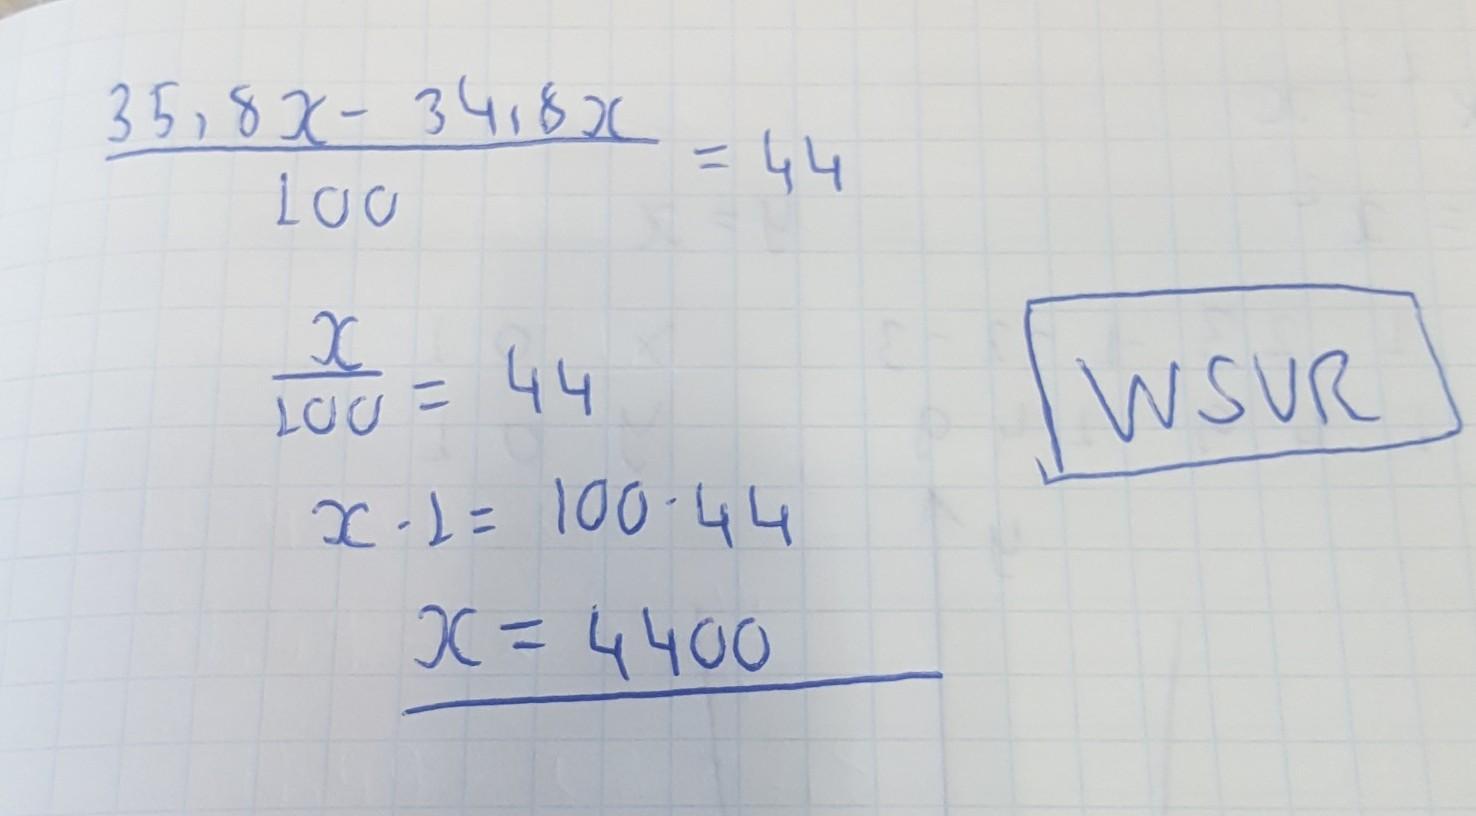 35,8x - 34,8x
100
= 44
x
100
= 44
x · 1 = 100 · 44
x = 4400
WSVR